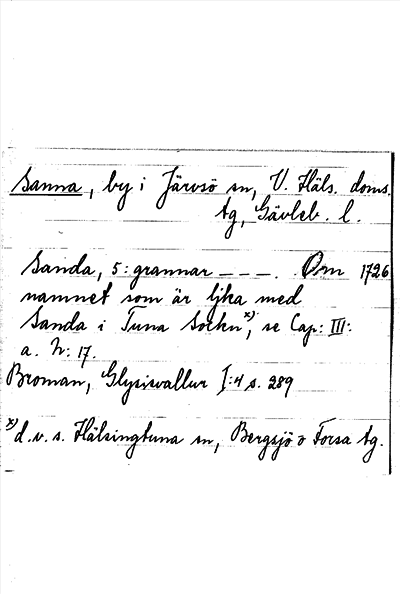 Sanna, by i Järvsö sn, V. Häls. doms.
tg, Gävleb. l.
Sanda, 5: grannar ---. Om 1726
namnet som är lika med
Sanda i Tuna Sochn x), se Cap: III:
a. N: 17.
Broman, Glysisvallur I:4 s. 289
x) d.v.s. Hälsingtuna sn, Bergsjö o Forsa tg.